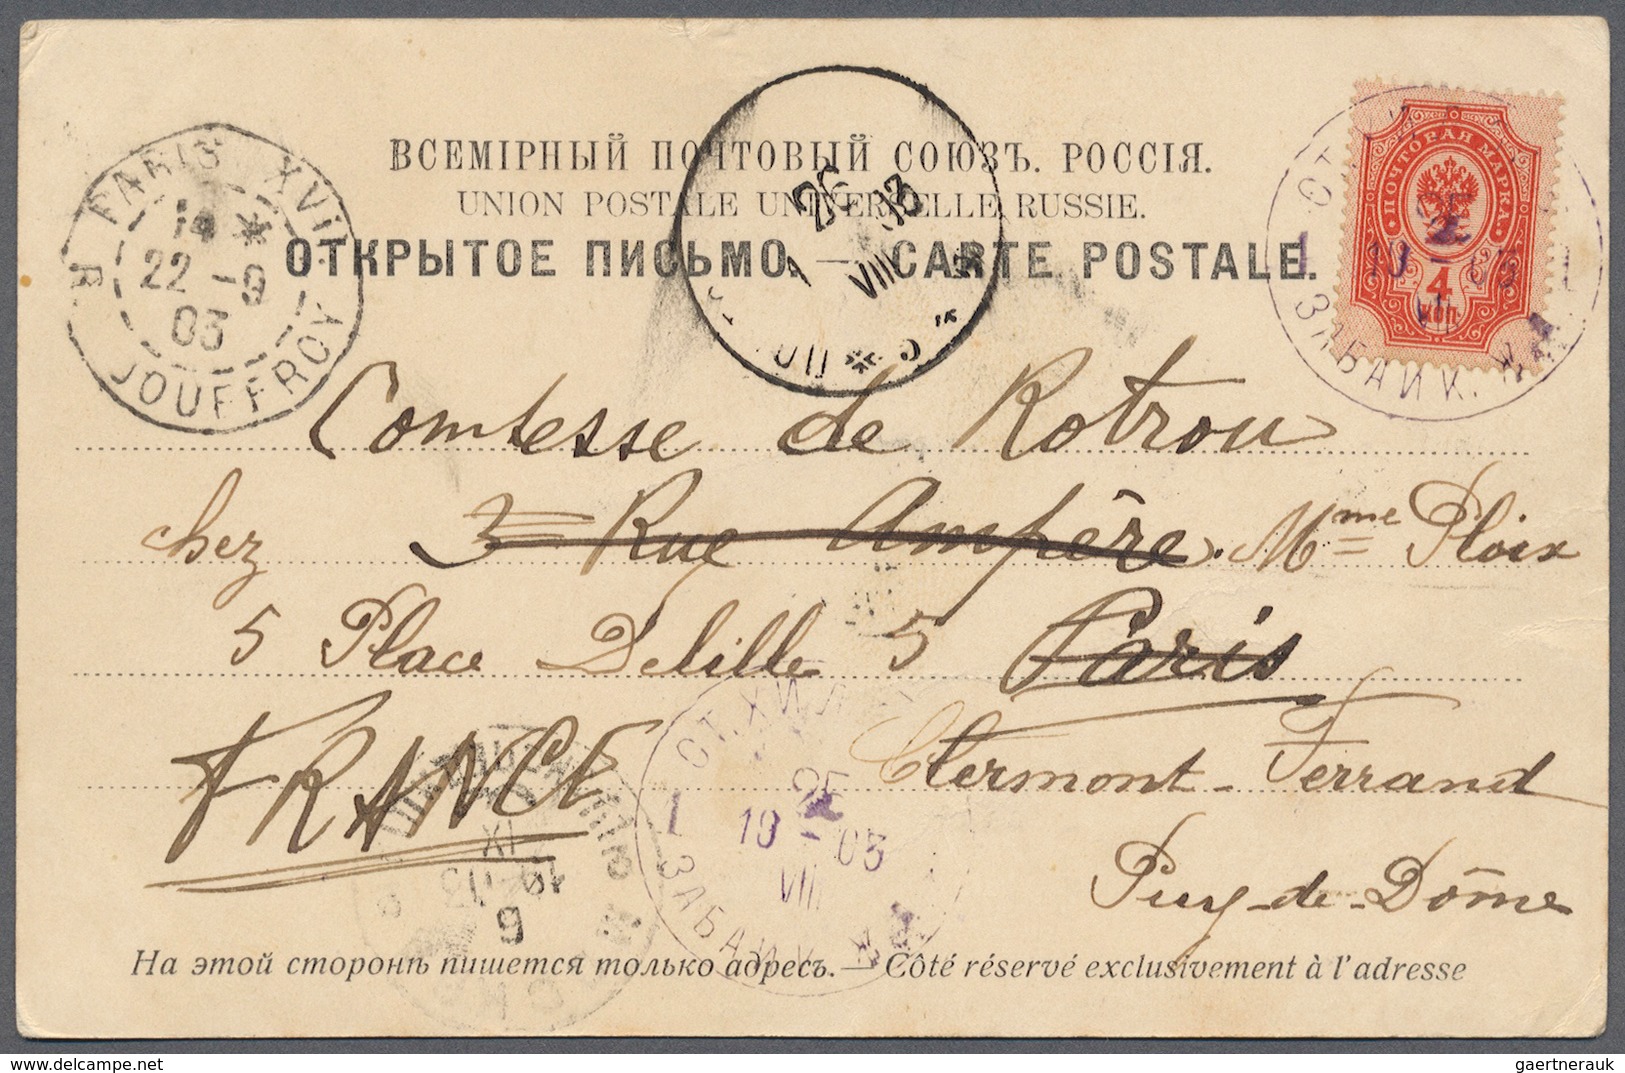 ВСЕМІРНЫЙ ПОЧТОВЫЙ СОЮЗЪ. РОССІЯ.
UNION POSTALE UNIVERSELLE RUSSIE.
ОТКРЫТОЕ ПИСЬМО. — CARTE POSTALE.
PARIS XVII
14 *
22 - 9
03
R JOUFFROY
1 26 03
VIII
ПОЧТОВАЯ МАРКА
4
КОП.
СТ.
25
1 19 - 03 1
VIII
ЗАБАЙК. Ж.
Comtesse de Rotrou
chez 3 Rue Ampère. Mme Ploix
5 Place Delille 5 Paris
FRANCE Clermont-Ferrand
Puy-de-Dôme
СТ. ХИЛ
25
1 19 - 03
VIII
ЗАБАЙК. Ж.
IX
19 03
6
На этой сторонѣ пишется только адресъ. — Côté réservé exclusivement à l'adresse
www.delcampe.net
gaertnerauk